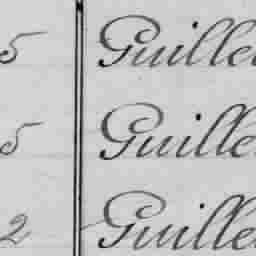 5 Guille
5 Guille
2 Guille